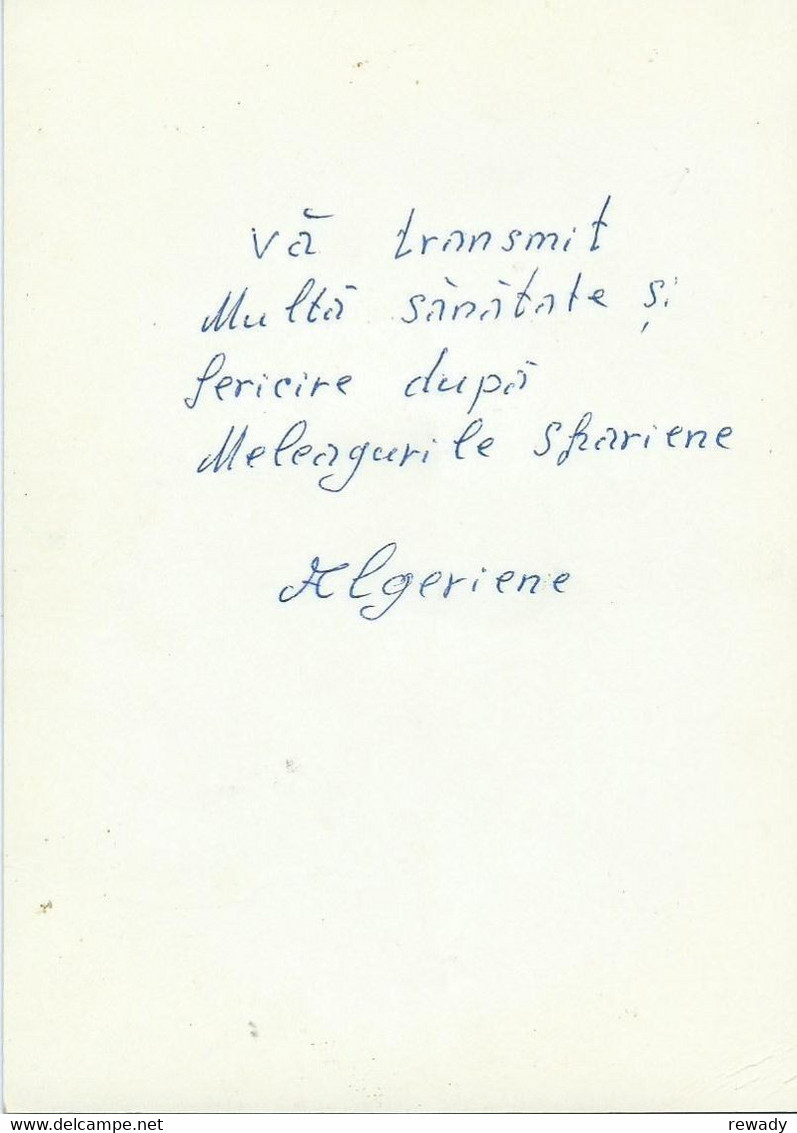 vă transmit
Multă sănătate și
fericire după
Meleagurile shariene
Algeriene
delcampe.net
rewady